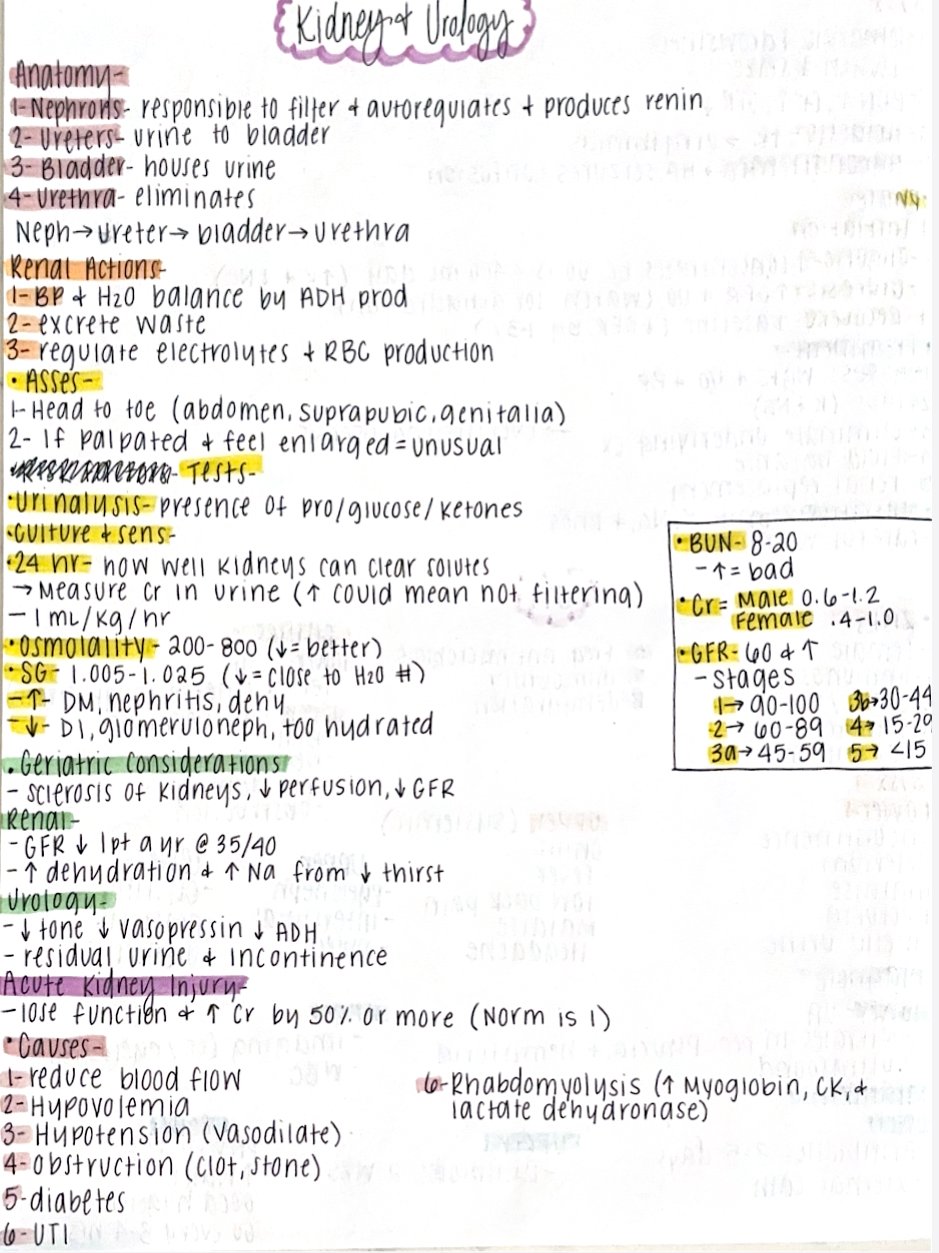 Kidney & Urology
Anatomy-
1- Nephrons- responsible to filter + autoregulates + produces renin
2- Ureters- urine to bladder
3- Bladder- houses urine
4- Urethra- eliminates
Neph→ureter→bladder→urethra
Renal Actions-
1- BP & H2O balance by ADH prod
2- excrete waste
3- regulate electrolytes + RBC production
• Asses-
1- Head to toe (abdomen, suprapubic, genitalia)
2- If palpated & feel enlarged = unusual
- Tests-
• Urinalysis- presence of pro/glucose/ketones
• culture + sens-
• 24 hr- how well kidneys can clear solutes
→ Measure Cr in urine (↑ could mean not filtering)
- 1 mL/kg/hr
• Osmolality- 200-800 (↓= better)
• SG- 1.005-1.025 (↓= close to H2O #)
-↑- DM, nephritis, dehy
-↓- DI, glomeruloneph, too hydrated
• Geriatric considerations
- sclerosis of kidneys, ↓ perfusion, ↓ GFR
Renal-
- GFR ↓ 1pt a yr @ 35/40
- ↑ dehydration & ↑ Na from ↓ thirst
Urology-
- ↓ tone ↓ vasopressin ↓ ADH
- residual urine & incontinence
Acute Kidney Injury-
- lose function & ↑ Cr by 50% or more (Norm is 1)
• Causes-
1- reduce blood flow
2- Hypovolemia
3- Hypotension (vasodilate)
4- obstruction (clot, stone)
5- diabetes
6- UTI
6- Rhabdomyolysis (↑ Myoglobin, CK, +
lactate dehydronase)
• BUN- 8-20
- ↑ = bad
• Cr= Male 0.6-1.2
Female .4-1.0
• GFR- 60 & ↑
- Stages
1→ 90-100 3b→30-44
2→ 60-89 4→ 15-29
3a→ 45-59 5→ <15